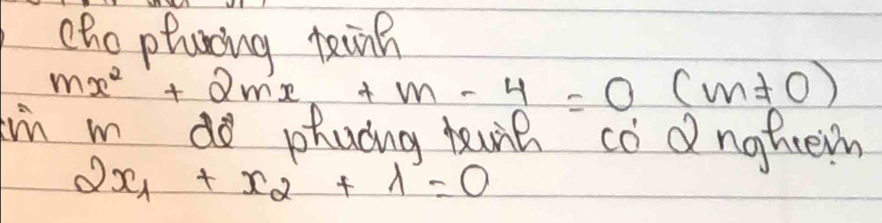 Cho phương trình
mx² + 2mx + m - 4 = 0 (m ≠ 0)
ìm m để phương trình có 2 nghiệm
2x₁ + x₂ + 1 = 0